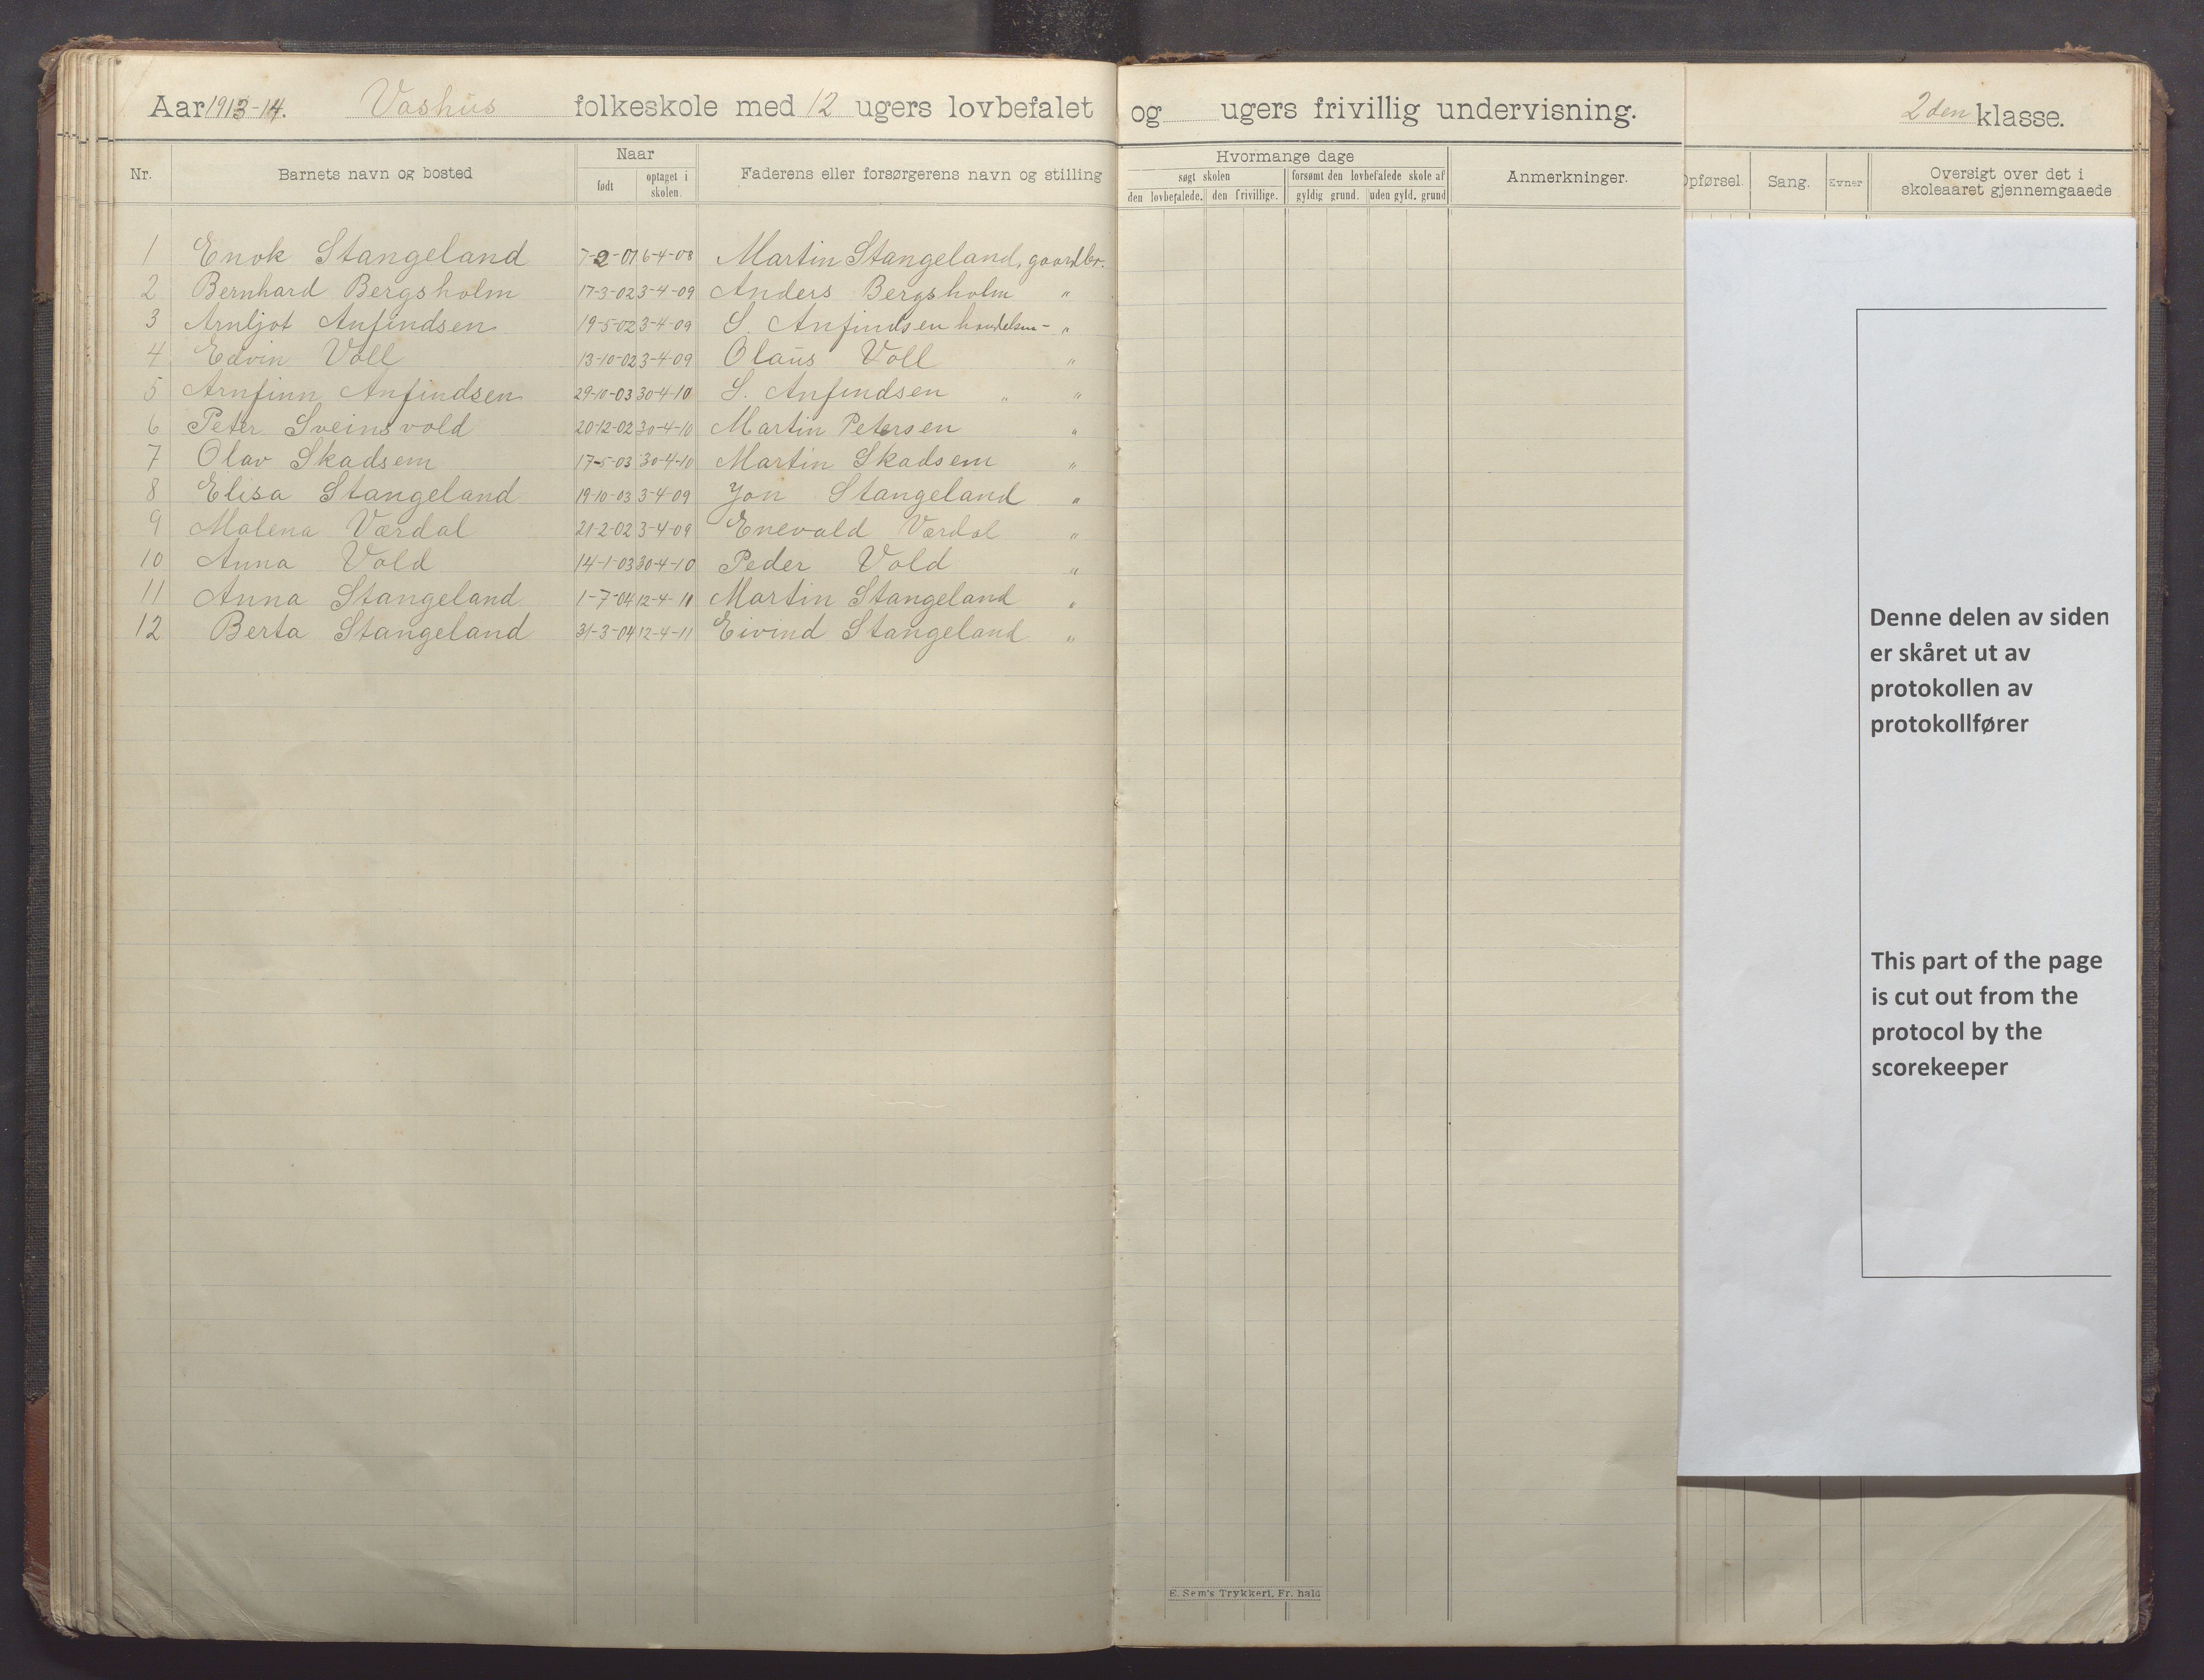 Aar 1913-14. Vashus folkeskole med 12 ugers lovbefalet og ugers frivillig undervisning. 2den klasse.
Nr. Barnets navn og bosted Naar født optaget i skolen. Faderens eller forsørgerens navn og stilling Hvormange dage søgt skolen den lovbefalede. den frivillige. forsømt den lovbefalede skole af gyldig grund. uden gyld. grund Anmerkninger. Opførsel. Sang. Evner Oversigt over det i skoleaaret gjennemgaaede
1 Enok Stangeland 7-2-01 6-4-08 Martin Stangeland, gaardbr.
2 Bernhard Bergsholm 17-3-02 3-4-09 Anders Bergsholm "
3 Arnljot Anfindsen 19-5-02 3-4-09 S. Anfindsen handelsm- "
4 Edvin Voll 13-10-02 3-4-09 Olaus Voll "
5 Arnfinn Anfindsen 29-10-03 30-4-10 S. Anfindsen " "
6 Peter Sveinsvold 20-12-02 30-4-10 Martin Petersen "
7 Olav Skadsem 17-5-03 30-4-10 Martin Skadsem "
8 Elisa Stangeland 19-10-03 3-4-09 Jon Stangeland "
9 Malena Værdal 21-2-02 3-4-09 Enevald Værdal "
10 Anna Vold 14-1-03 30-4-10 Peder Vold "
11 Anna Stangeland 1-7-04 12-4-11 Martin Stangeland "
12 Berta Stangeland 31-3-04 12-4-11 Eivind Stangeland "
Denne delen av siden
er skåret ut av
protokollen av
protokollfører
This part of the page
is cut out from the
protocol by the
scorekeeper
E. Sem's Trykkeri, Fr. hald